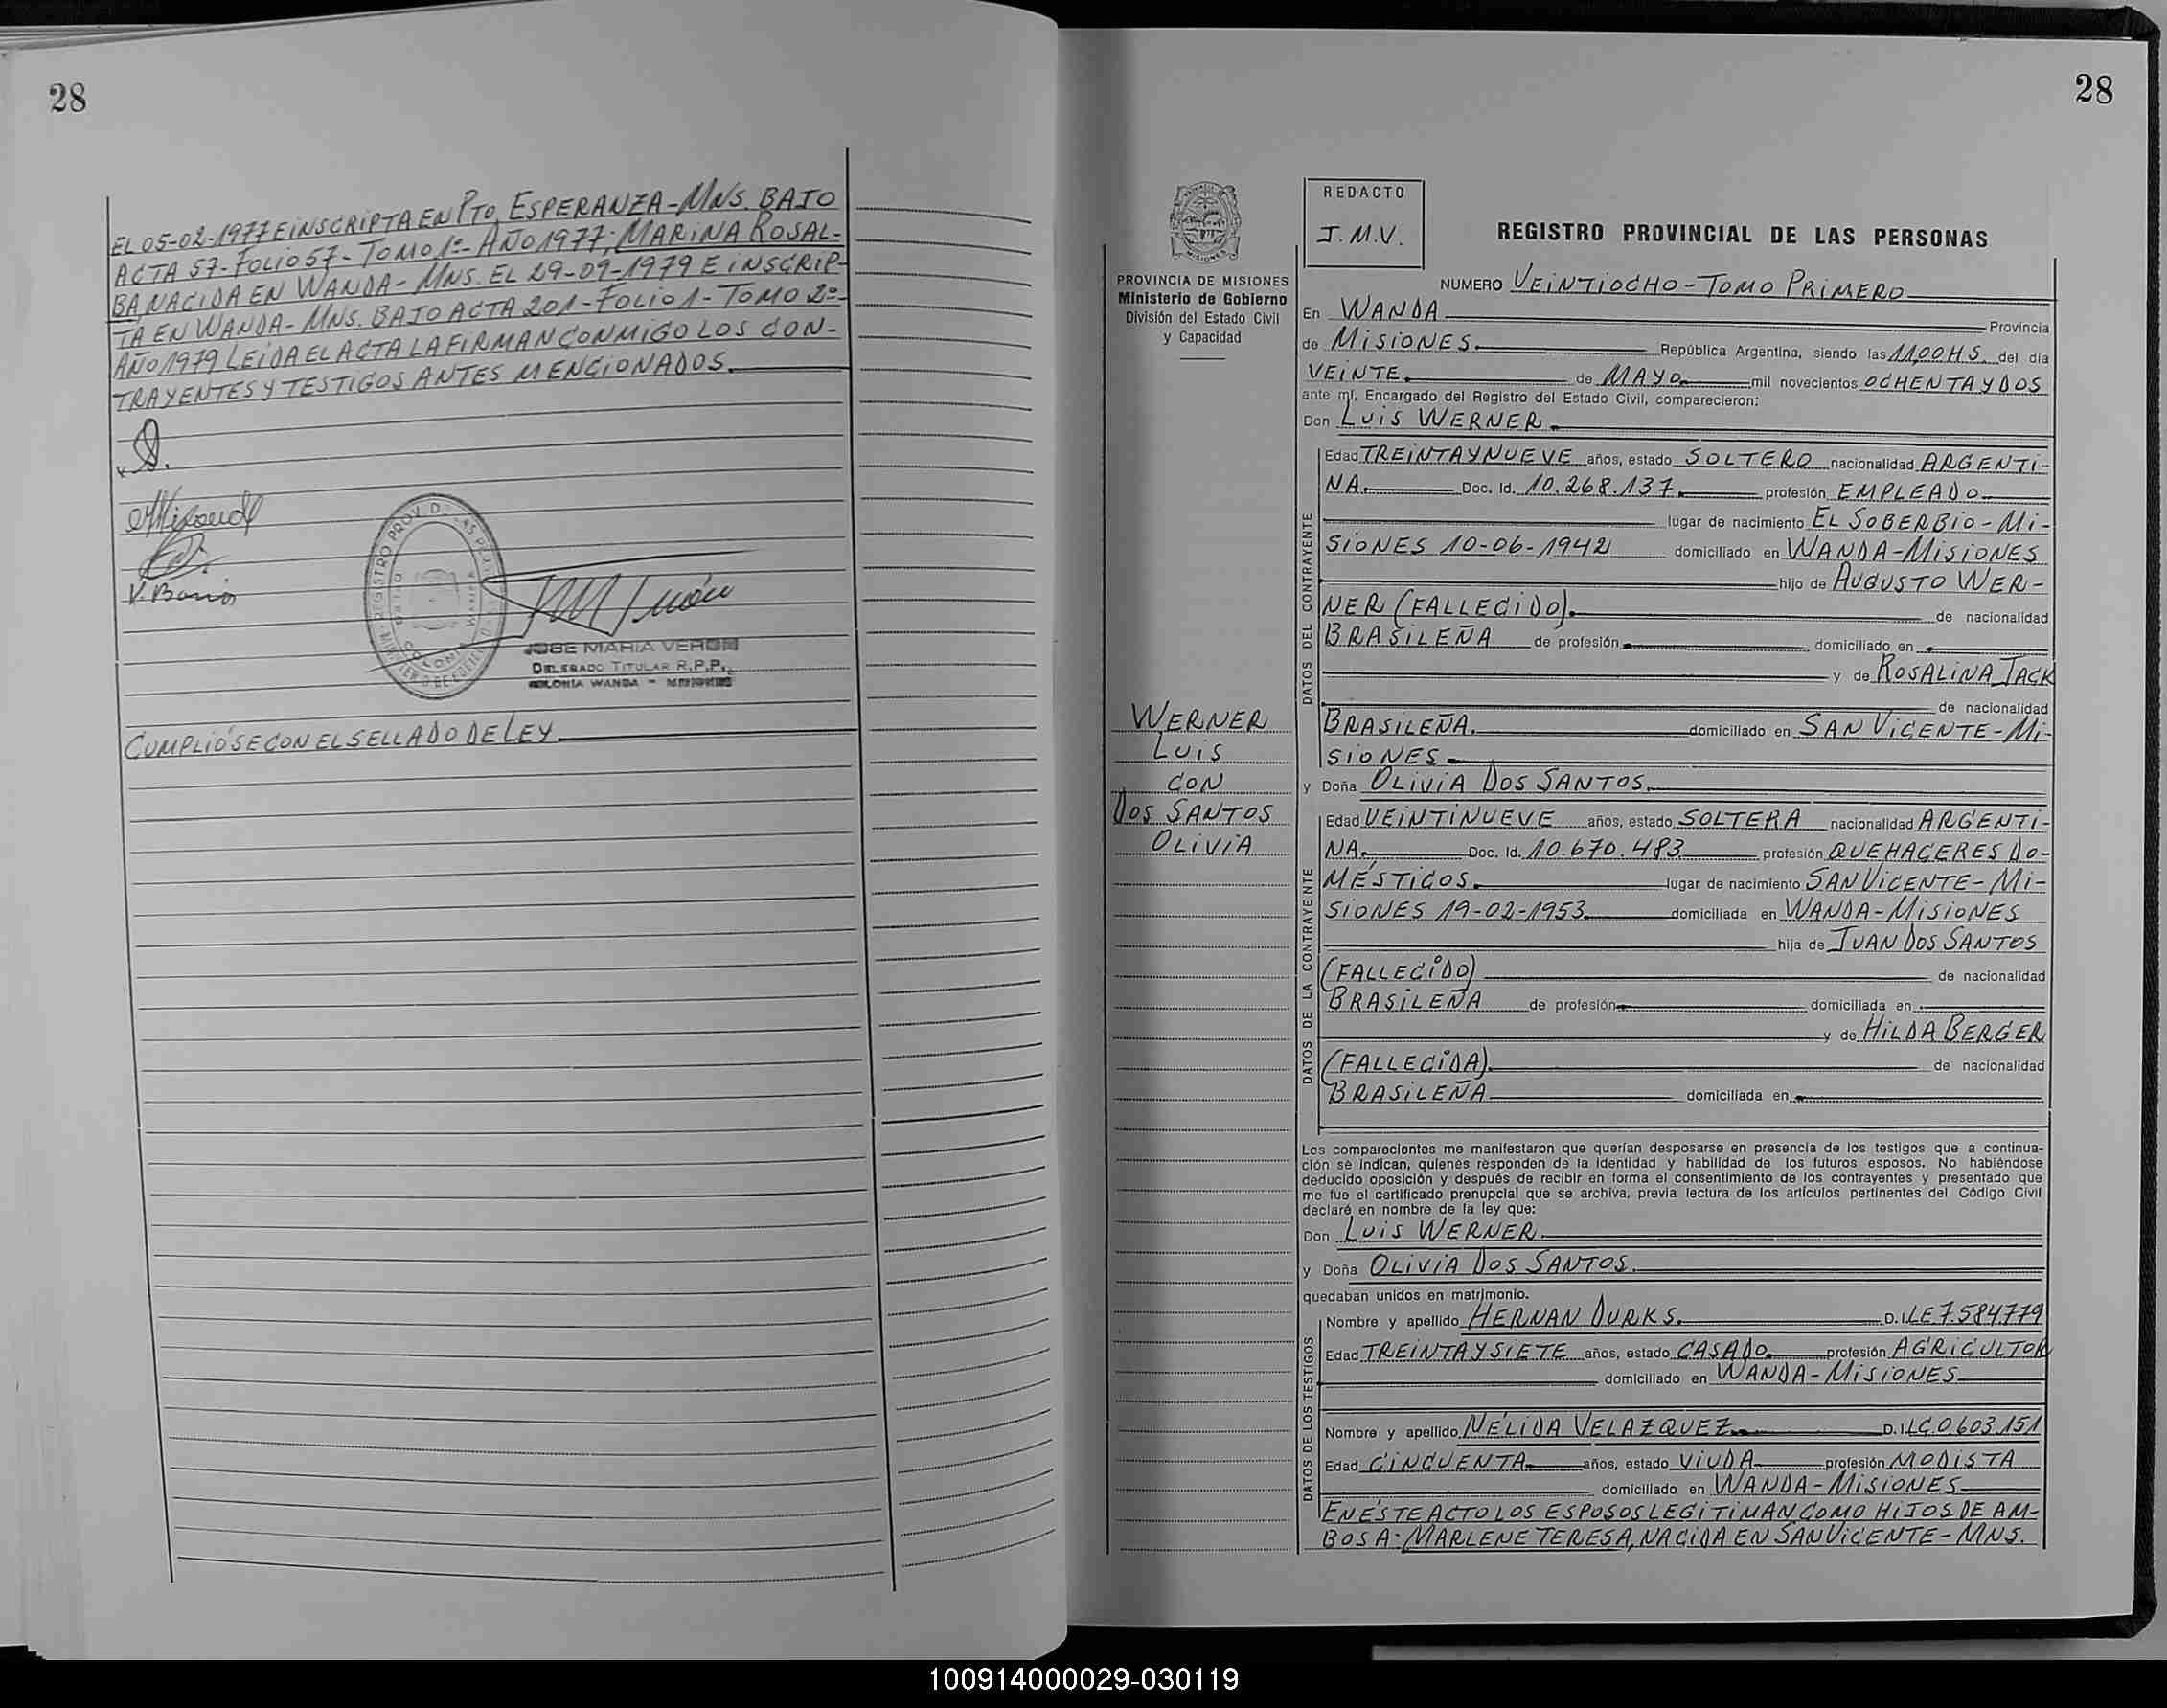 28
EL 05-02-1977 E iNSCRiPTA EN PTO. ESPERANZA-MNS. BAJO
ACTA 57-FOLIO 57-TOMO 1º-AÑO 1977; MARiNA ROSAL-
BA, NACIDA EN WANDA-MNS. EL 29-09-1979 E iNSCRIP-
TA EN WANDA-MNS. BAJO ACTA 201-FOLIO 1-TOMO 2º-
AÑO 1979 LEIDA EL ACTA LA FIRMAN CONMIGO LOS CON-
TRAYENTES Y TESTIGOS ANTES MENCIONADOS.
V. Barrios
JOSE MARIA VERON
DELEGADO TITULAR R.P.P.
COLONIA WANDA - MISIONES
CUMPLIÓSE CON EL SELLADO DE LEY.
28
PROVINCIA DE MISIONES
Ministerio de Gobierno
División del Estado Civil
y Capacidad
WERNER
LUiS
CON
DOS SANTOS
OLiViA
REDACTO
J.M.V.
REGISTRO PROVINCIAL DE LAS PERSONAS
NUMERO VEiNTiOCHO-TOMO PRiMERO
En WANDA Provincia
de MiSiONES. República Argentina, siendo las 11,00 HS. del día
VEiNTE. de MAYO. mil novecientos OCHENTA Y DOS
ante mí, Encargado del Registro del Estado Civil, comparecieron:
Don LUiS WERNER.
DATOS DEL CONTRAYENTE
Edad TREiNTA Y NUEVE años, estado SOLTERO nacionalidad ARGENTi-
NA. Doc. Id. 10.268.137. profesión EMPLEADO.
lugar de nacimiento EL SOBERBiO-Mi-
SiONES 10-06-1942 domiciliado en WANDA-MiSiONES
hijo de AUGUSTO WER-
NER (FALLECiDO). de nacionalidad
BRASiLEÑA de profesión domiciliado en
y de ROSALiNA JACK
de nacionalidad
BRASiLEÑA. domiciliado en SAN ViCENTE-Mi-
SiONES
y Doña OLiViA DOS SANTOS.
DATOS DE LA CONTRAYENTE
Edad VEiNTiNUEVE años, estado SOLTERA nacionalidad ARGENTi-
NA. Doc. Id. 10.670.483 profesión QUEHACERES DO-
MÉSTICOS. lugar de nacimiento SAN ViCENTE-Mi-
SiONES 19-02-1953. domiciliada en WANDA-MiSiONES
hija de JUAN DOS SANTOS
(FALLECiDO) de nacionalidad
BRASiLEÑA de profesión domiciliada en
y de HiLDA BERGER
(FALLECiDA). de nacionalidad
BRASiLEÑA domiciliada en
Los comparecientes me manifestaron que querían desposarse en presencia de los testigos que a continua-
ción se indican, quienes responden de la identidad y habilidad de los futuros esposos. No habiéndose
deducido oposición y después de recibir en forma el consentimiento de los contrayentes y presentado que
me fue el certificado prenupcial que se archiva, previa lectura de los artículos pertinentes del Código Civil
declaré en nombre de la ley que:
Don LUiS WERNER.
y Doña OLiViA DOS SANTOS.
quedaban unidos en matrimonio.
DATOS DE LOS TESTIGOS
Nombre y apellido HERNAN DURKS. D. I. LE 7.584.779
Edad TREiNTA Y SiETE años, estado CASADO. profesión AGRiCULTOR
domiciliado en WANDA-MiSiONES
Nombre y apellido NÉLiDA VELAZQUEZ. D. I. LC 0.603.151
Edad CiNCUENTA. años, estado ViUDA profesión MODiSTA
domiciliado en WANDA-MiSiONES
EN ÉSTE ACTO LOS ESPOSOS LEGiTiMAN COMO HiJOS DE AM-
BOS A: MARLENE TERESA, NACiDA EN SAN ViCENTE-MNS.
100914000029-030119